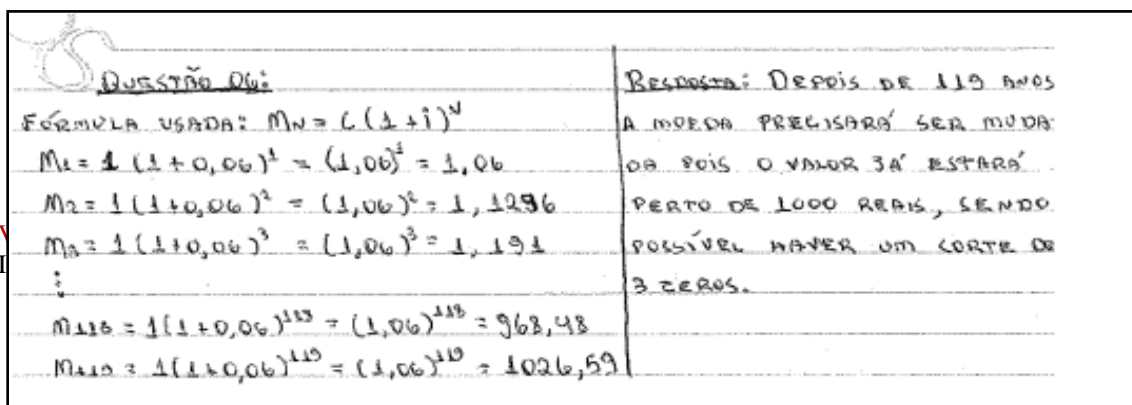 QUESTÃO 06:
FÓRMULA USADA: MN = C(1+i)^N
M1 = 1 (1+0,06)^1 = (1,06)^1 = 1,06
M2 = 1(1+0,06)^2 = (1,06)^2 = 1,1296
M3 = 1(1+0,06)^3 = (1,06)^3 = 1,191
⋮
M118 = 1(1+0,06)^118 = (1,06)^118 = 968,48
M119 = 1(1+0,06)^119 = (1,06)^119 = 1026,59
RESPOSTA: DEPOIS DE 119 ANOS
A MOEDA PRECISARÁ SER MUDA-
DA POIS O VALOR JÁ ESTARÁ
PERTO DE 1000 REAIS, SENDO
POSSÍVEL HAVER UM CORTE DE
3 ZEROS.